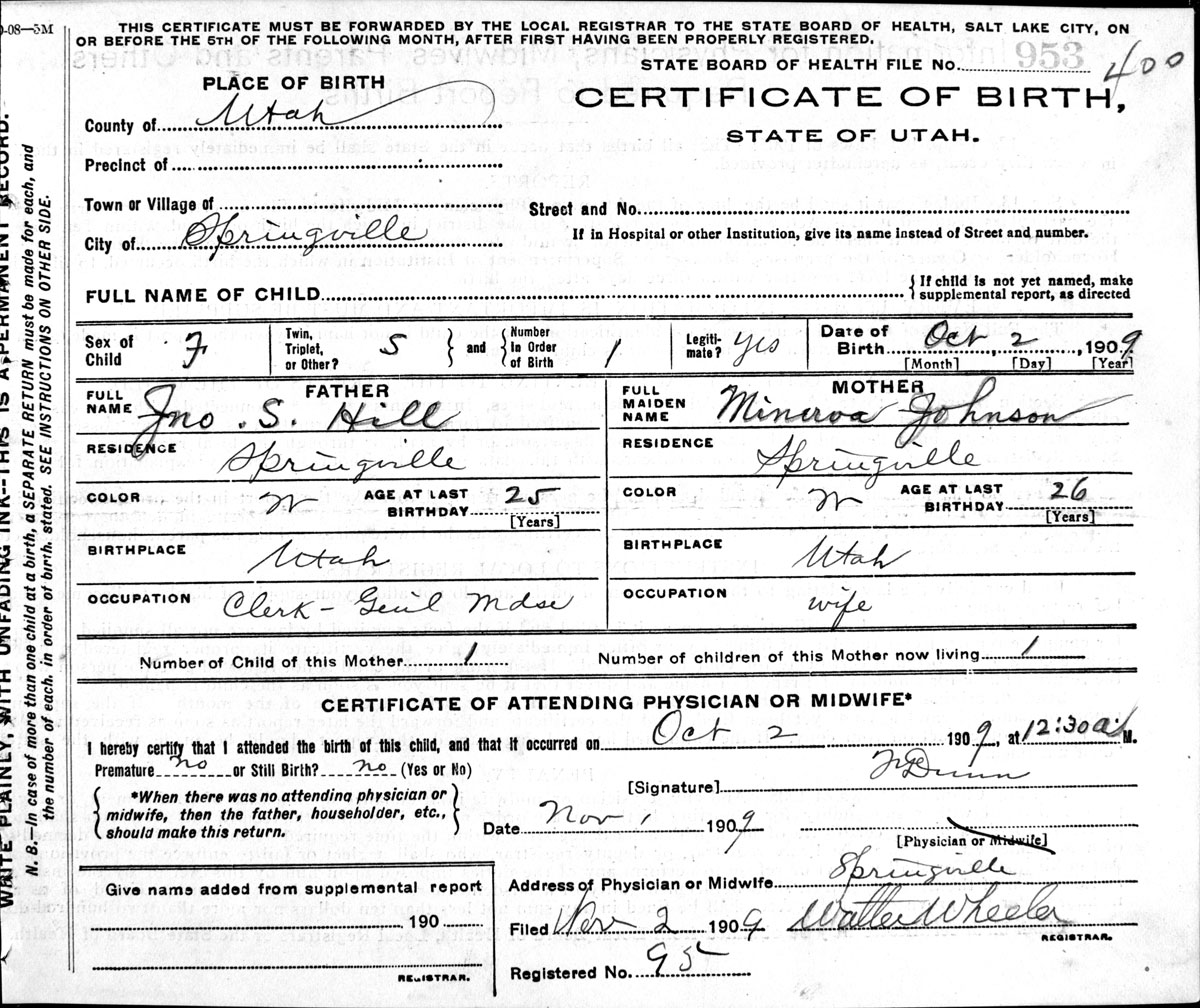 0-08—5M
THIS CERTIFICATE MUST BE FORWARDED BY THE LOCAL REGISTRAR TO THE STATE BOARD OF HEALTH, SALT LAKE CITY, ON
OR BEFORE THE 5TH OF THE FOLLOWING MONTH, AFTER FIRST HAVING BEEN PROPERLY REGISTERED.
953
STATE BOARD OF HEALTH FILE No. 400
PLACE OF BIRTH
CERTIFICATE OF BIRTH,
STATE OF UTAH.
County of Utah
Precinct of
Town or Village of
Street and No.
City of Springville
If in Hospital or other Institution, give its name instead of Street and number.
FULL NAME OF CHILD { If child is not yet named, make
supplemental report, as directed
Sex of
Child F
Twin,
Triplet,
or Other? S } and { Number
In Order
of Birth 1
Legiti-
mate? Yes
Date of
Birth Oct 2, 1909
[Month] [Day] [Year]
FATHER
FULL
NAME Jno. S. Hill
RESIDENCE Springville
COLOR W AGE AT LAST
BIRTHDAY 25
[Years]
BIRTHPLACE Utah
OCCUPATION Clerk - Genl Mdse
MOTHER
FULL
MAIDEN
NAME Minerva Johnson
RESIDENCE Springville
COLOR W AGE AT LAST
BIRTHDAY 26
[Years]
BIRTHPLACE Utah
OCCUPATION wife
Number of Child of this Mother 1 Number of children of this Mother now living 1
CERTIFICATE OF ATTENDING PHYSICIAN OR MIDWIFE*
I hereby certify that I attended the birth of this child, and that it occurred on Oct 2 1909, at 12:30 a M.
Premature no or Still Birth? no (Yes or No)
[Signature] Dunn
{ *When there was no attending physician or
midwife, then the father, householder, etc.,
should make this return. }
Date Nov 1 1909
[Physician or Midwife]
Address of Physician or Midwife Springville
Give name added from supplemental report
190
REGISTRAR.
Filed Nov 2 1909 Walter Wheeler
REGISTRAR.
Registered No. 95
WRITE PLAINLY, WITH UNFADING INK--THIS IS A PERMANENT RECORD.
N. B.—In case of more than one child at a birth, a SEPARATE RETURN must be made for each, and
the number of each, in order of birth, stated. SEE INSTRUCTIONS ON OTHER SIDE.